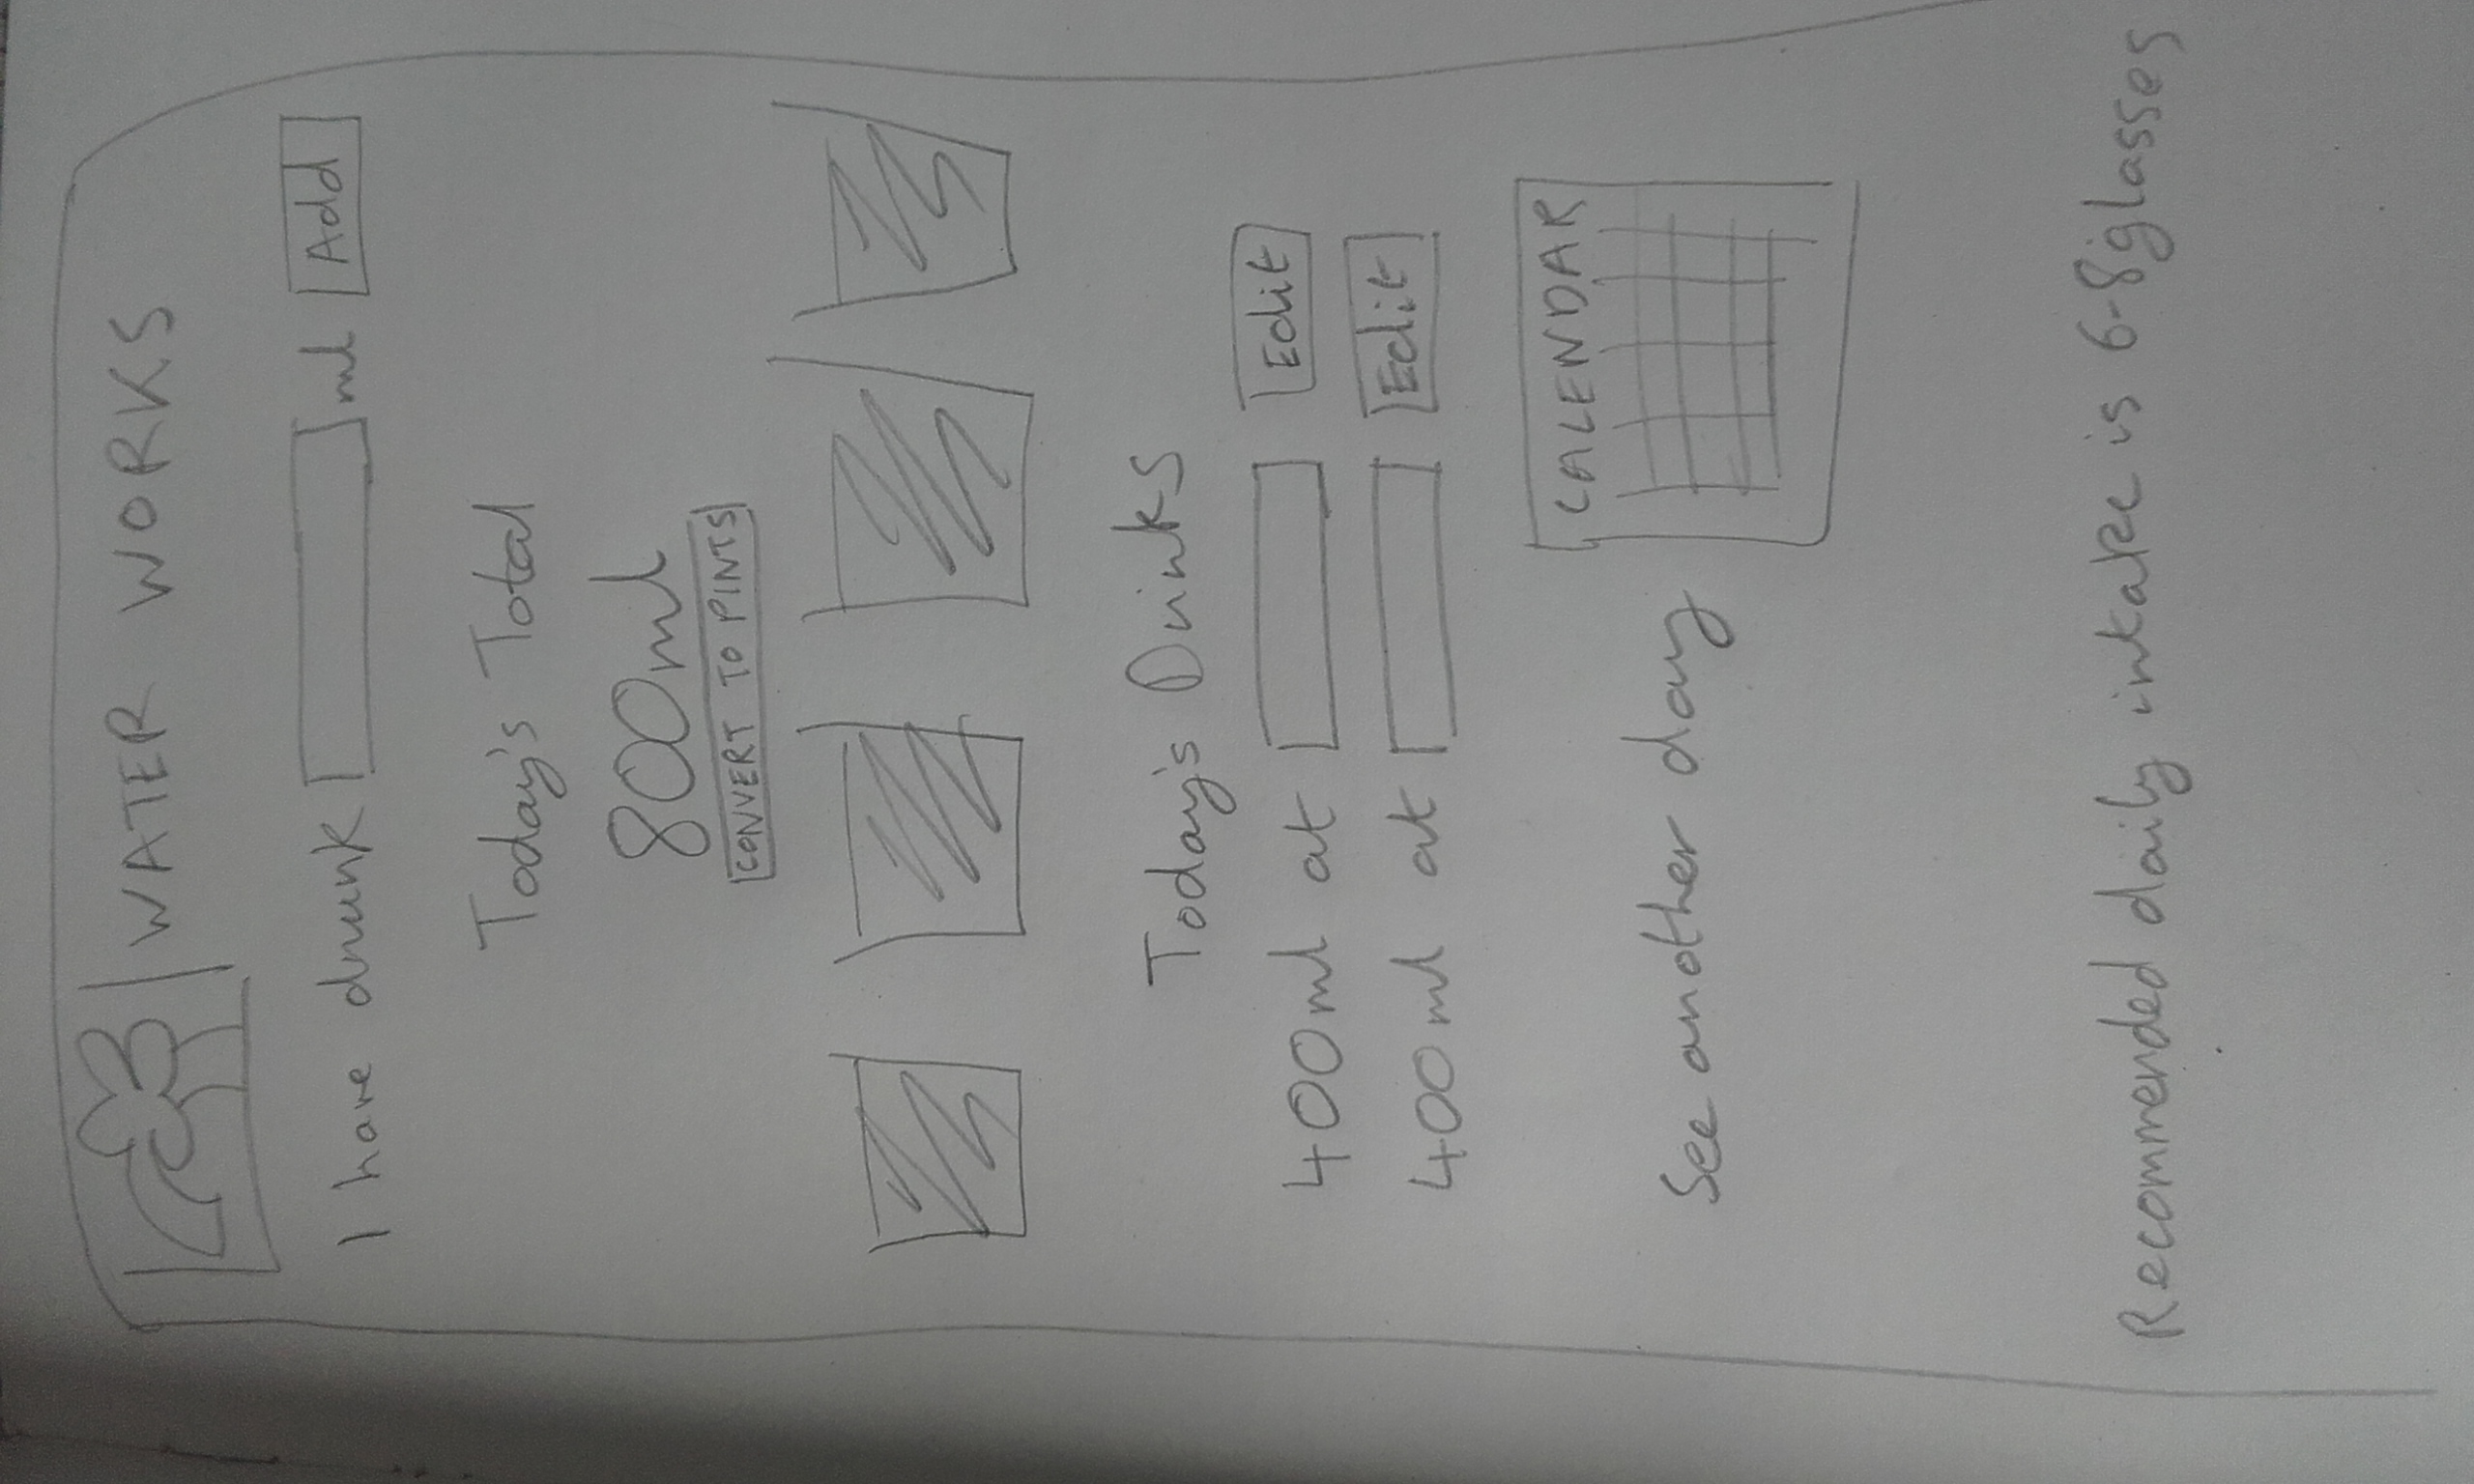 WATER WORKS
I have drunk ml Add
Today's Total
800ml
CONVERT TO PINTS
Today's Drinks
400ml at Edit
400ml at Edit
CALENDAR
See another day
Recommended daily intake is 6-8 glasses